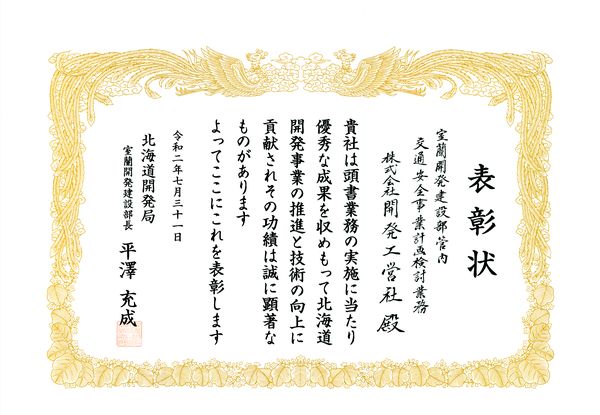 表彰状
室蘭開発建設部管内
交通安全事業計画検討業務
株式会社開発工営社 殿
貴社は頭書業務の実施に当たり
優秀な成果を収めもって北海道
開発事業の推進と技術の向上に
貢献されその功績は誠に顕著な
ものがあります
よってここにこれを表彰します
令和二年七月三十一日
北海道開発局
室蘭開発建設部長 平澤 充成